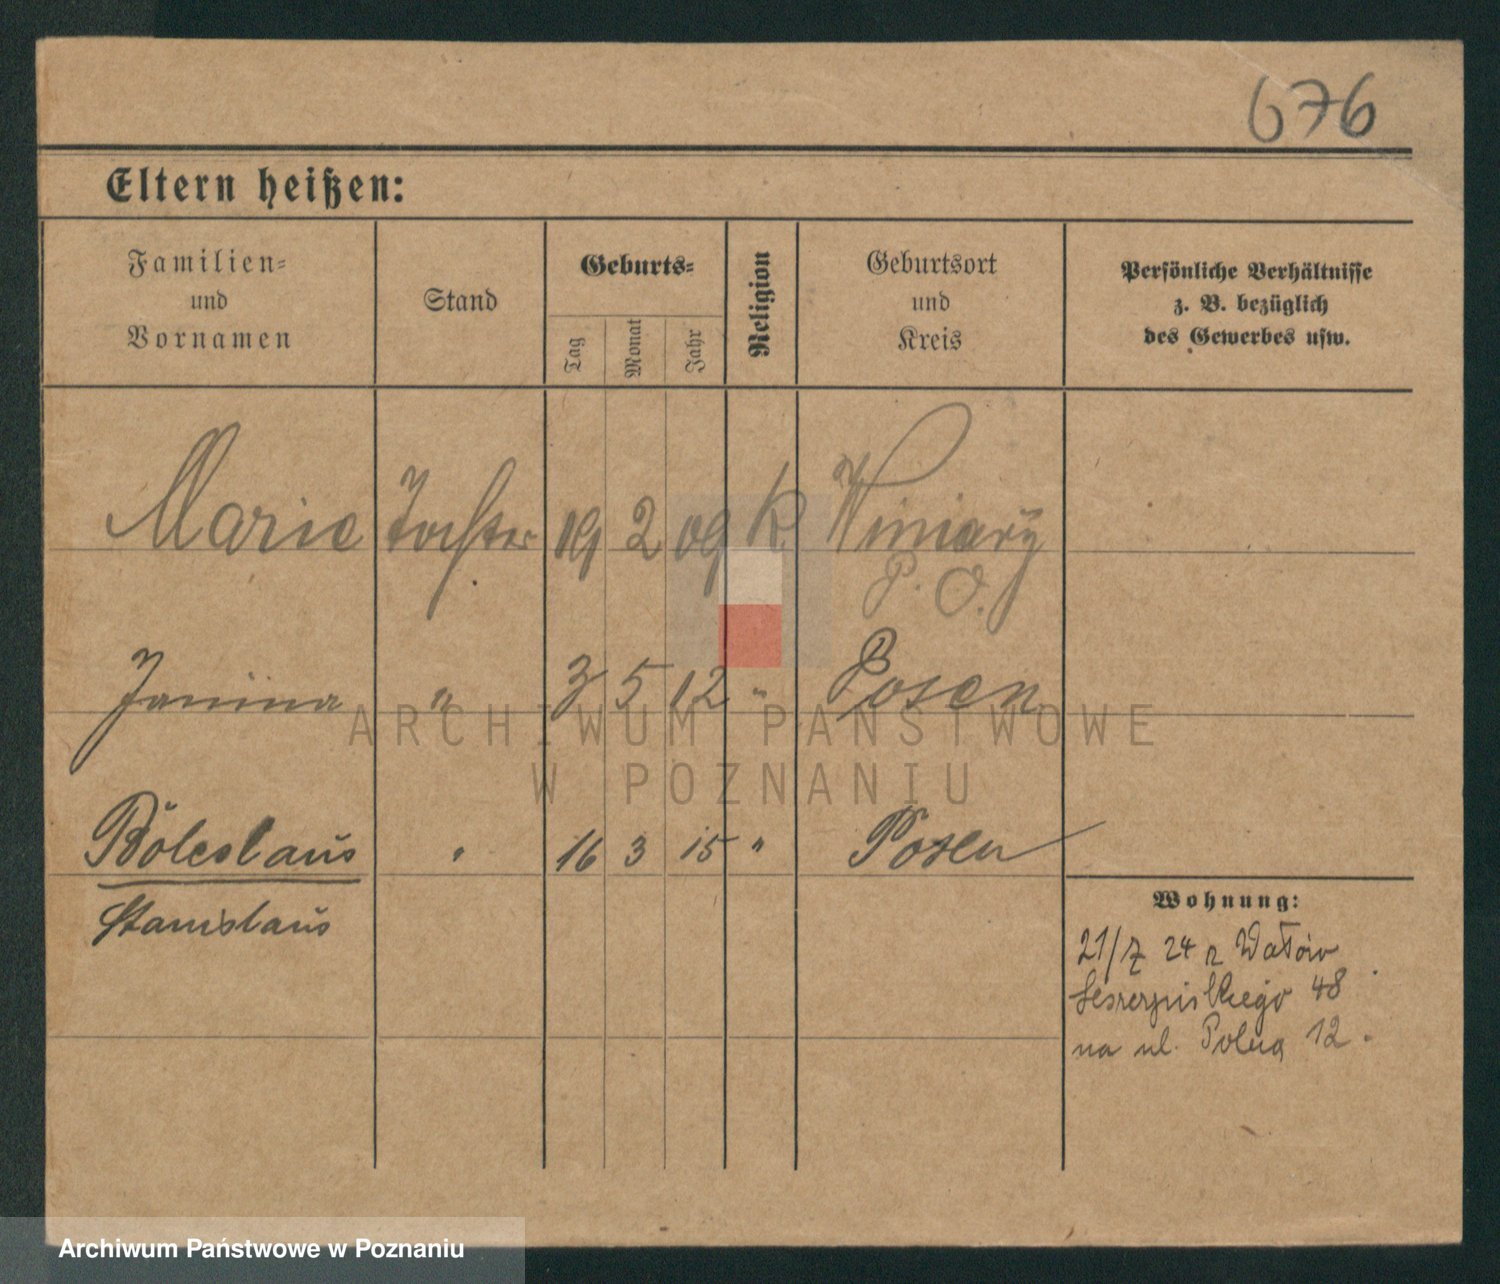 676
Eltern heißen:
Familien=
und
Vornamen
Stand
Geburts=
Tag
Monat
Jahr
Religion
Geburtsort
und
Kreis
Persönliche Verhältnisse
z. B. bezüglich
des Gewerbes usw.
Marie Tochter 19 2 09 K. Winiary
P. O.
Janina " 3 5 12 " Posen
ARCHIWUM PAŃSTWOWE
W POZNANIU
Boleslaus " 16 3 15 " Posen
Stanislaus
Wohnung:
21/7 24 z Wałów
48
na ul. Polna 12.
Archiwum Państwowe w Poznaniu